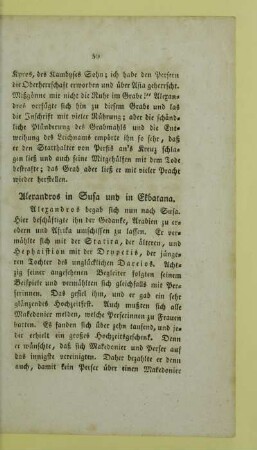 89
Kyros, des Kambyses Sohn; ich habe den Persern
die Oberherrschaft erworben und über Asia geherrscht.
Mißgönne mir nicht die Ruhe im Grabe!" Alexan-
dros verfügte sich hin zu diesem Grabe und las
die Inschrift mit vieler Rührung; aber die schänd-
liche Plünderung des Grabmahls und die Ent-
weihung des Leichnams empörte ihn so sehr, daß
er den Statthalter von Persis an's Kreuz schla-
gen ließ und auch seine Mitgehülfen mit dem Tode
bestrafte; das Grab aber ließ er mit vieler Pracht
wieder herstellen.
Alexandros in Susa und in Ekbatana.
Alexandros begab sich nun nach Susa.
Hier beschäftigte ihn der Gedanke, Arabien zu er-
obern und Afrika umschiffen zu lassen. Er ver-
mählte sich mit der Statira, der älteren, und
Hephaistion mit der Drypetis, der jünge-
ren Tochter des unglücklichen Dareios. Acht-
zig seiner angesehenen Begleiter folgten seinem
Beispiele und vermählten sich gleichfalls mit Per-
serinnen. Das gefiel ihm, und er gab ein sehr
glänzendes Hochzeitfest. Auch mußten sich alle
Makedonier melden, welche Perserinnen zu Frauen
hatten. Es fanden sich über zehn tausend, und je-
der erhielt ein großes Hochzeitsgeschenk. Denn
er wünschte, daß sich Makedonier und Perser auf
das innigste vereinigten. Daher bezahlte er denn
auch, damit kein Perser über einen Makedonier